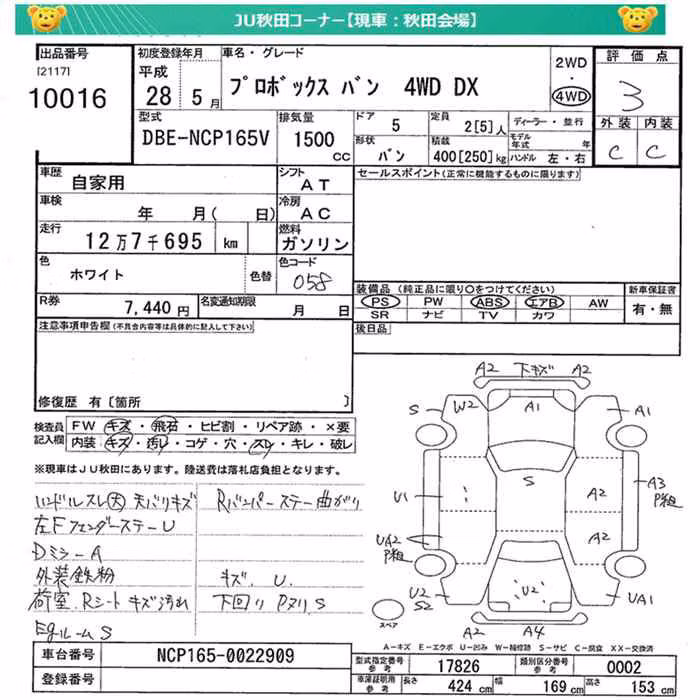 JU秋田コーナー【現車:秋田会場】
出品番号
[2117]
10016
初度登録年月
平成
28 5月
車名・グレード
プロボックス バン 4WD DX
2WD
・
4WD
評価点
3
外装 内装
C C
型式
DBE-NCP165V
排気量
1500
CC
ドア
5
形状
バン
定員
2[5]人
積載
400[250]kg
ディーラー・並行
モデル年式 年
ハンドル 左・右
車歴
自家用
シフト
AT
車検
年 月( 日)
冷房
AC
走行
12万7千695 km
燃料
ガソリン
色
ホワイト
色替
色コード
058
R券
7,440円
名変通知期限
月 日
セールスポイント(正常に機能するものに限ります)
装備品(純正品に限り○をつけてください)
PS PW ABS エアB AW
SR ナビ TV カワ
新車保証書
有・無
後日品
注意事項申告欄(不具合内容等は具体的に記入して下さい)
修復歴 有[箇所 ]
検査員
記入欄
FW キズ・飛石・ヒビ割・リペア跡・×要
内装 キズ・汚レ・コゲ・穴・スレ・キレ・破レ
※現車はJU秋田にあります。陸送費は落札店負担となります。
ハンドルスレ大 天バリキズ
左Fフェンダーステー U
Dミラー A
外装鉄粉
荷室、Rシート キズ汚れ
Egルーム S
Rバンパーステー曲がり
キズ、U.
下回り Pヌリ、S
A2 下キズ A2
S W2 A1 A1
S
U1 A2 A3
P粗
UA2 A2
P粗
U2 U2 UA1
S2
A2 A4
スペア
A-キズ E-エクボ U-凹み W-補修跡 S-サビ C-腐食 XX-交換済
車台番号
NCP165-0022909
登録番号
型式指定番号
参考
17826
類別区分番号
参考
0002
車庫証明用
参考
長さ 424 cm 幅 169 cm 高さ 153 cm